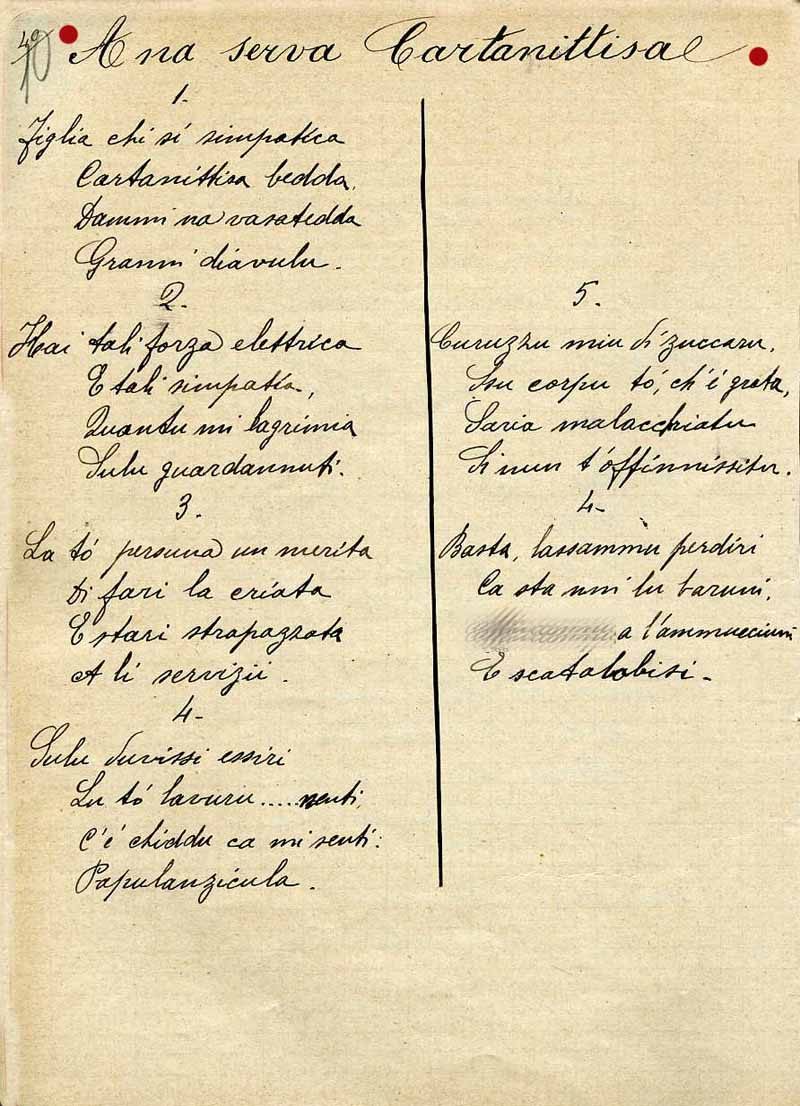 40
10
A na serva Cartanittisa
1.
Figlia chi sí simpatica
Cartanittisa bedda,
Dammi na vasatedda
Granni diavulu.
2.
Hai tali forza elettrica
E tali simpatía,
Quantu mi lagrimia
Sulu guardannuti.
3.
La tó persuna un merita
Di fari la criata
E stari strapazzata
A li servizii.
4.
Sulu duvissi essiri
Lu tó lavuru.....nenti,
C'é chiddu ca mi senti:
Papulanzicula.
5.
Curuzzu miu di zuccaru,
Ssu corpu tó, ch'é grata,
Saria malacchiatu
Si nun t'óffinnissitu.
4.
Basta, lassammu perdiri
Ca sta nni lu baruni,
a l'ammucciuni
E scatalobisi.